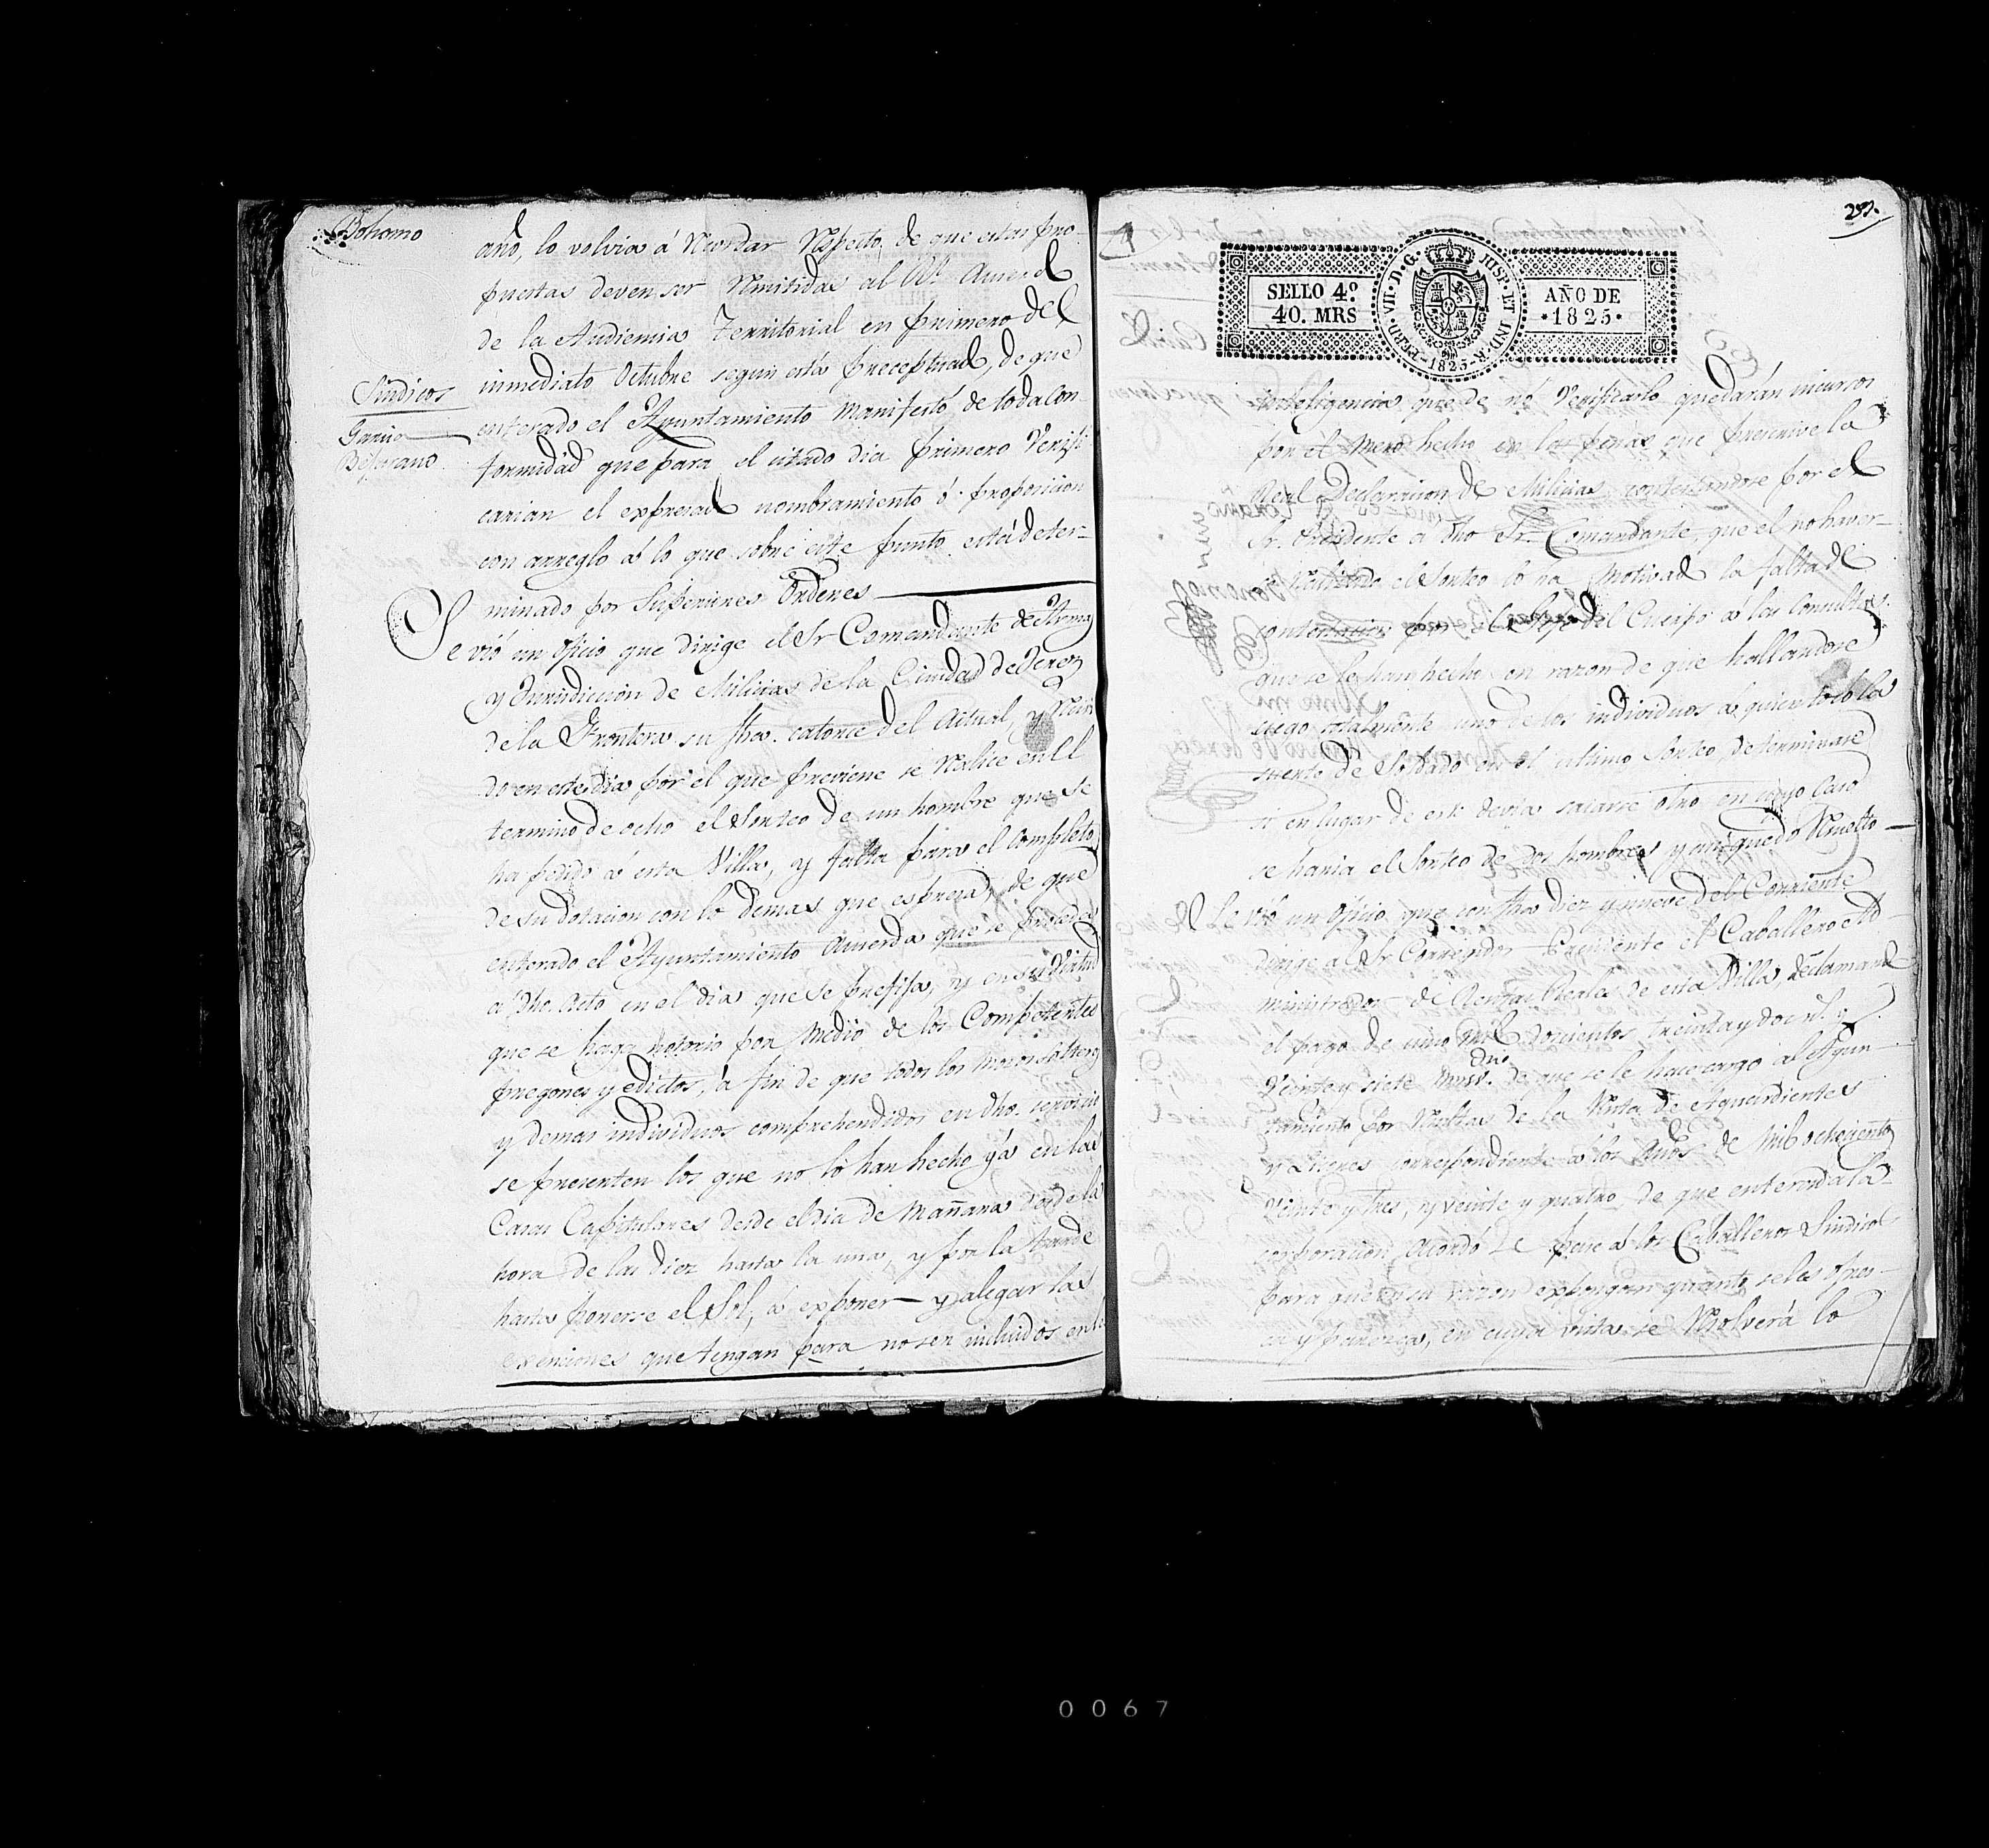 Bohorno
Síndicos
Garcia
Bejarano
año, lo volvia á recordar respecto de que estas pro-
puestas deven ser remitidas al Rl. Acuerdo
de la Audiencia Territorial en primero del
inmediato Octubre segun está preceptuado, de que
enterado el Ayuntamiento manifestó de toda con
formidad que para el citado dia primero verifi
carian el expresado nombramiento ó proposicion
con arreglo á lo que sobre este punto está deter-
minado por Superiores Ordenes
Se vió un oficio que dirige el Sr Comandante de Armas
y Jurisdiccion de Milicias de la Ciudad de Jerez
de la Frontera su fha. catorce del Actual, y reciv
do en este dia por el que previene se realice en el
termino de ocho el Sorteo de un hombre que se
ha pedido á esta Villa, y falta para el completo
de su dotacion con lo demas que espresa, de que
enterado el Ayuntamiento Acuerda que se proceda
a dho. acto en el dia que se prefija, y en su virtud
que se haga notorio por medio de los Competentes
pregones y edictos, á fin de que todos los mozos solteros
y demas individuos comprehendidos en dho. servicio
se presenten los que no lo han hecho yá en las
Casas Capitulares desde el dia de mañana desde la
hora de las diez hasta la una, y por la tarde
hasta ponerse el Sol, á exponer y alegar las
exenciones que tengan para no ser incluidos en le
SELLO 4º
40. MRS
FERD. VII. D. G. HISP. ET IND. R. 1825
AÑO DE
1825
inteligencia que de nó verificarlo quedarán incursos
por el mero hecho en las penas que prescrive la
Real Declaracion de Milicias, contestandose por el
Sr. Presidente a dho Sr. Comandante, que el no haver-
se realizado el Sorteo lo ha motivado la falta de
contestacion por el Gefe del Cuerpo á las consultas
que se le han hecho en razon de que hallandose
ciego totalmente uno de los individuos á quien tocó la
suerte de Soldado en el ultimo Sorteo, determinase
si en lugar de este devia sacarse otro en cuyo caso
se haria el Sorteo de dos hombres y asi quedó resuelto
Se vió un oficio que con fha diez y nueve del Corriente
dirige al Sr Corregidor Presidente el Caballero Ad-
ministrador de Rentas Reales de esta Villa, reclamando
el pago de unos mil doscientos treinta y dos rl. y
veinte y siete mrs. de que se le hace cargo al Ayun
tamiento por resultas de la Renta de Aguardientes
y Licores correspondiente á los años de mil ochocientos
veinte y tres, y veinte y quatro, de que enterada la
corporacion, acordó se pase á los Caballeros Sindicos
para que en su razon expongan quanto se les ofres-
ca y paresca, en cuya vista se resolverá lo
0067